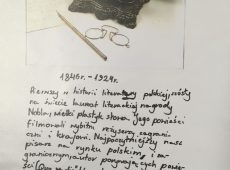 1846r. - 1924r.
Pierwszy w historii literatury polskiej, szósty
na świecie laureat literackiej nagrody
Nobla, wielki plastyk słowa. Jego powieści
filmowali wybitni reżyserzy zagrani-
czni i krajowi. Najpoczytniejszy nasz
pisarz na rynku polskim, i za-
granicznym, autor porywających powie-
ści